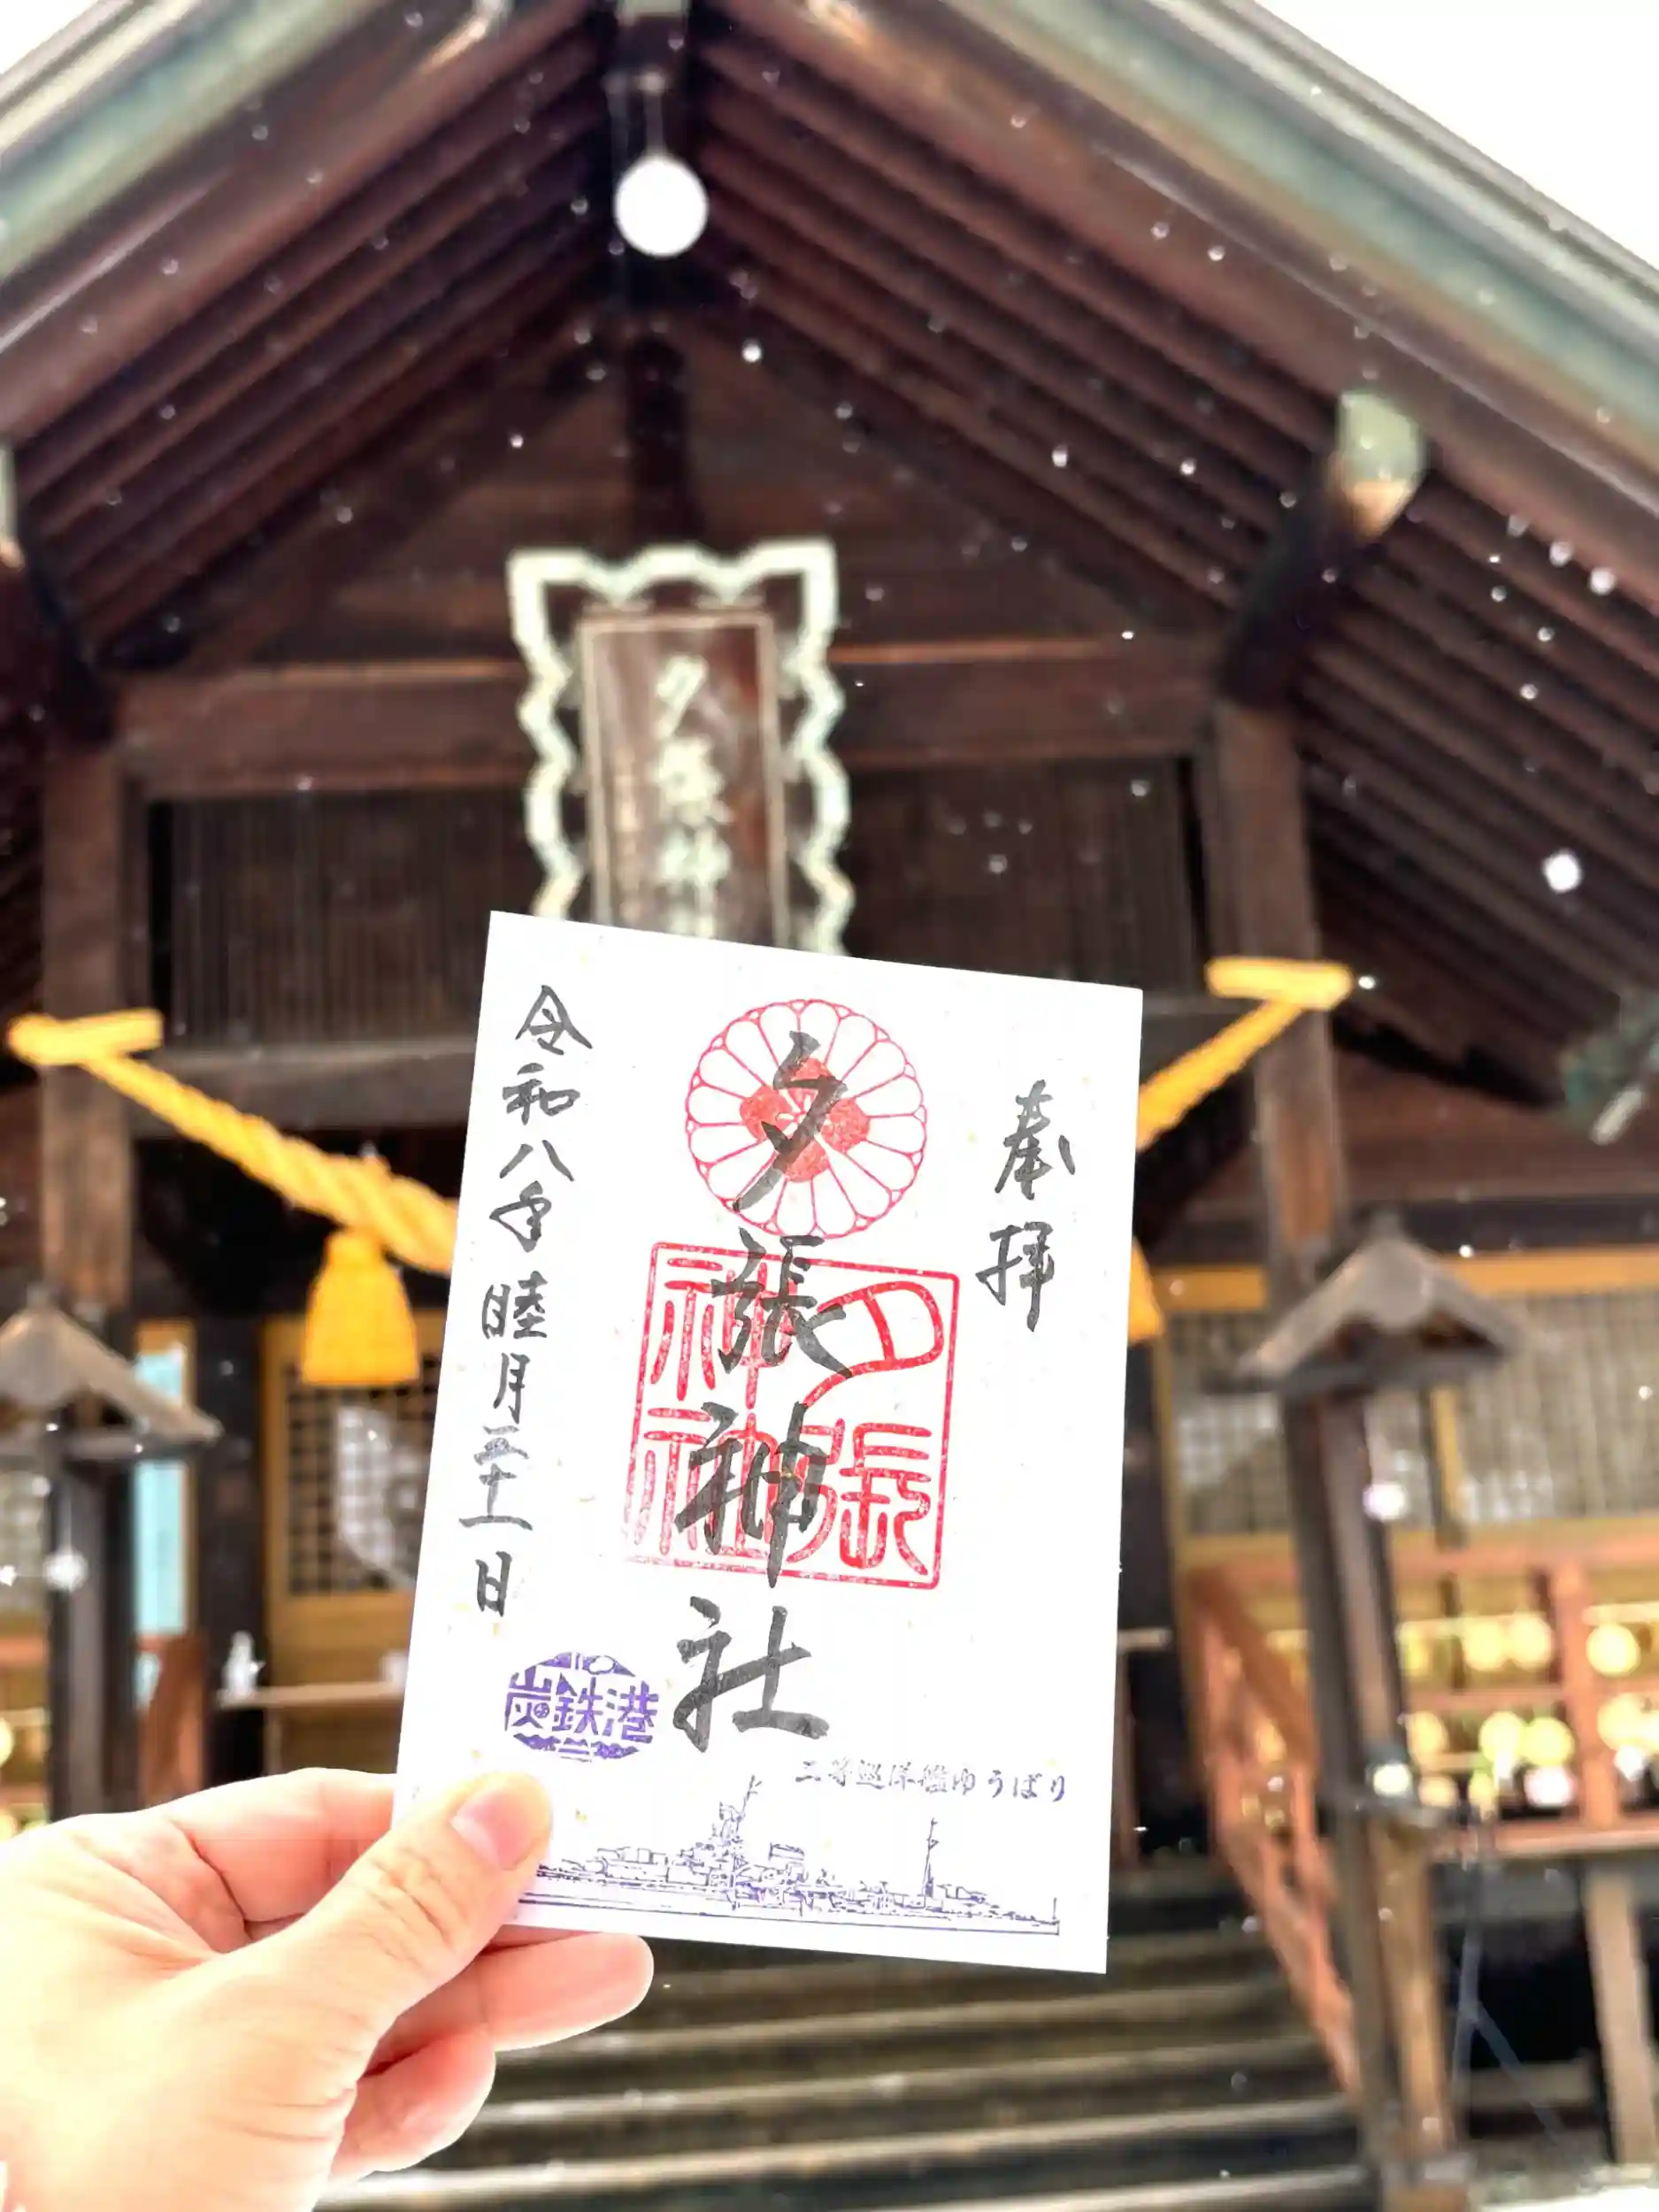 夕張神社
奉拝
夕張神社
夕張
神社
令和八年睦月三十一日
炭鉄港
二等巡洋艦ゆうばり